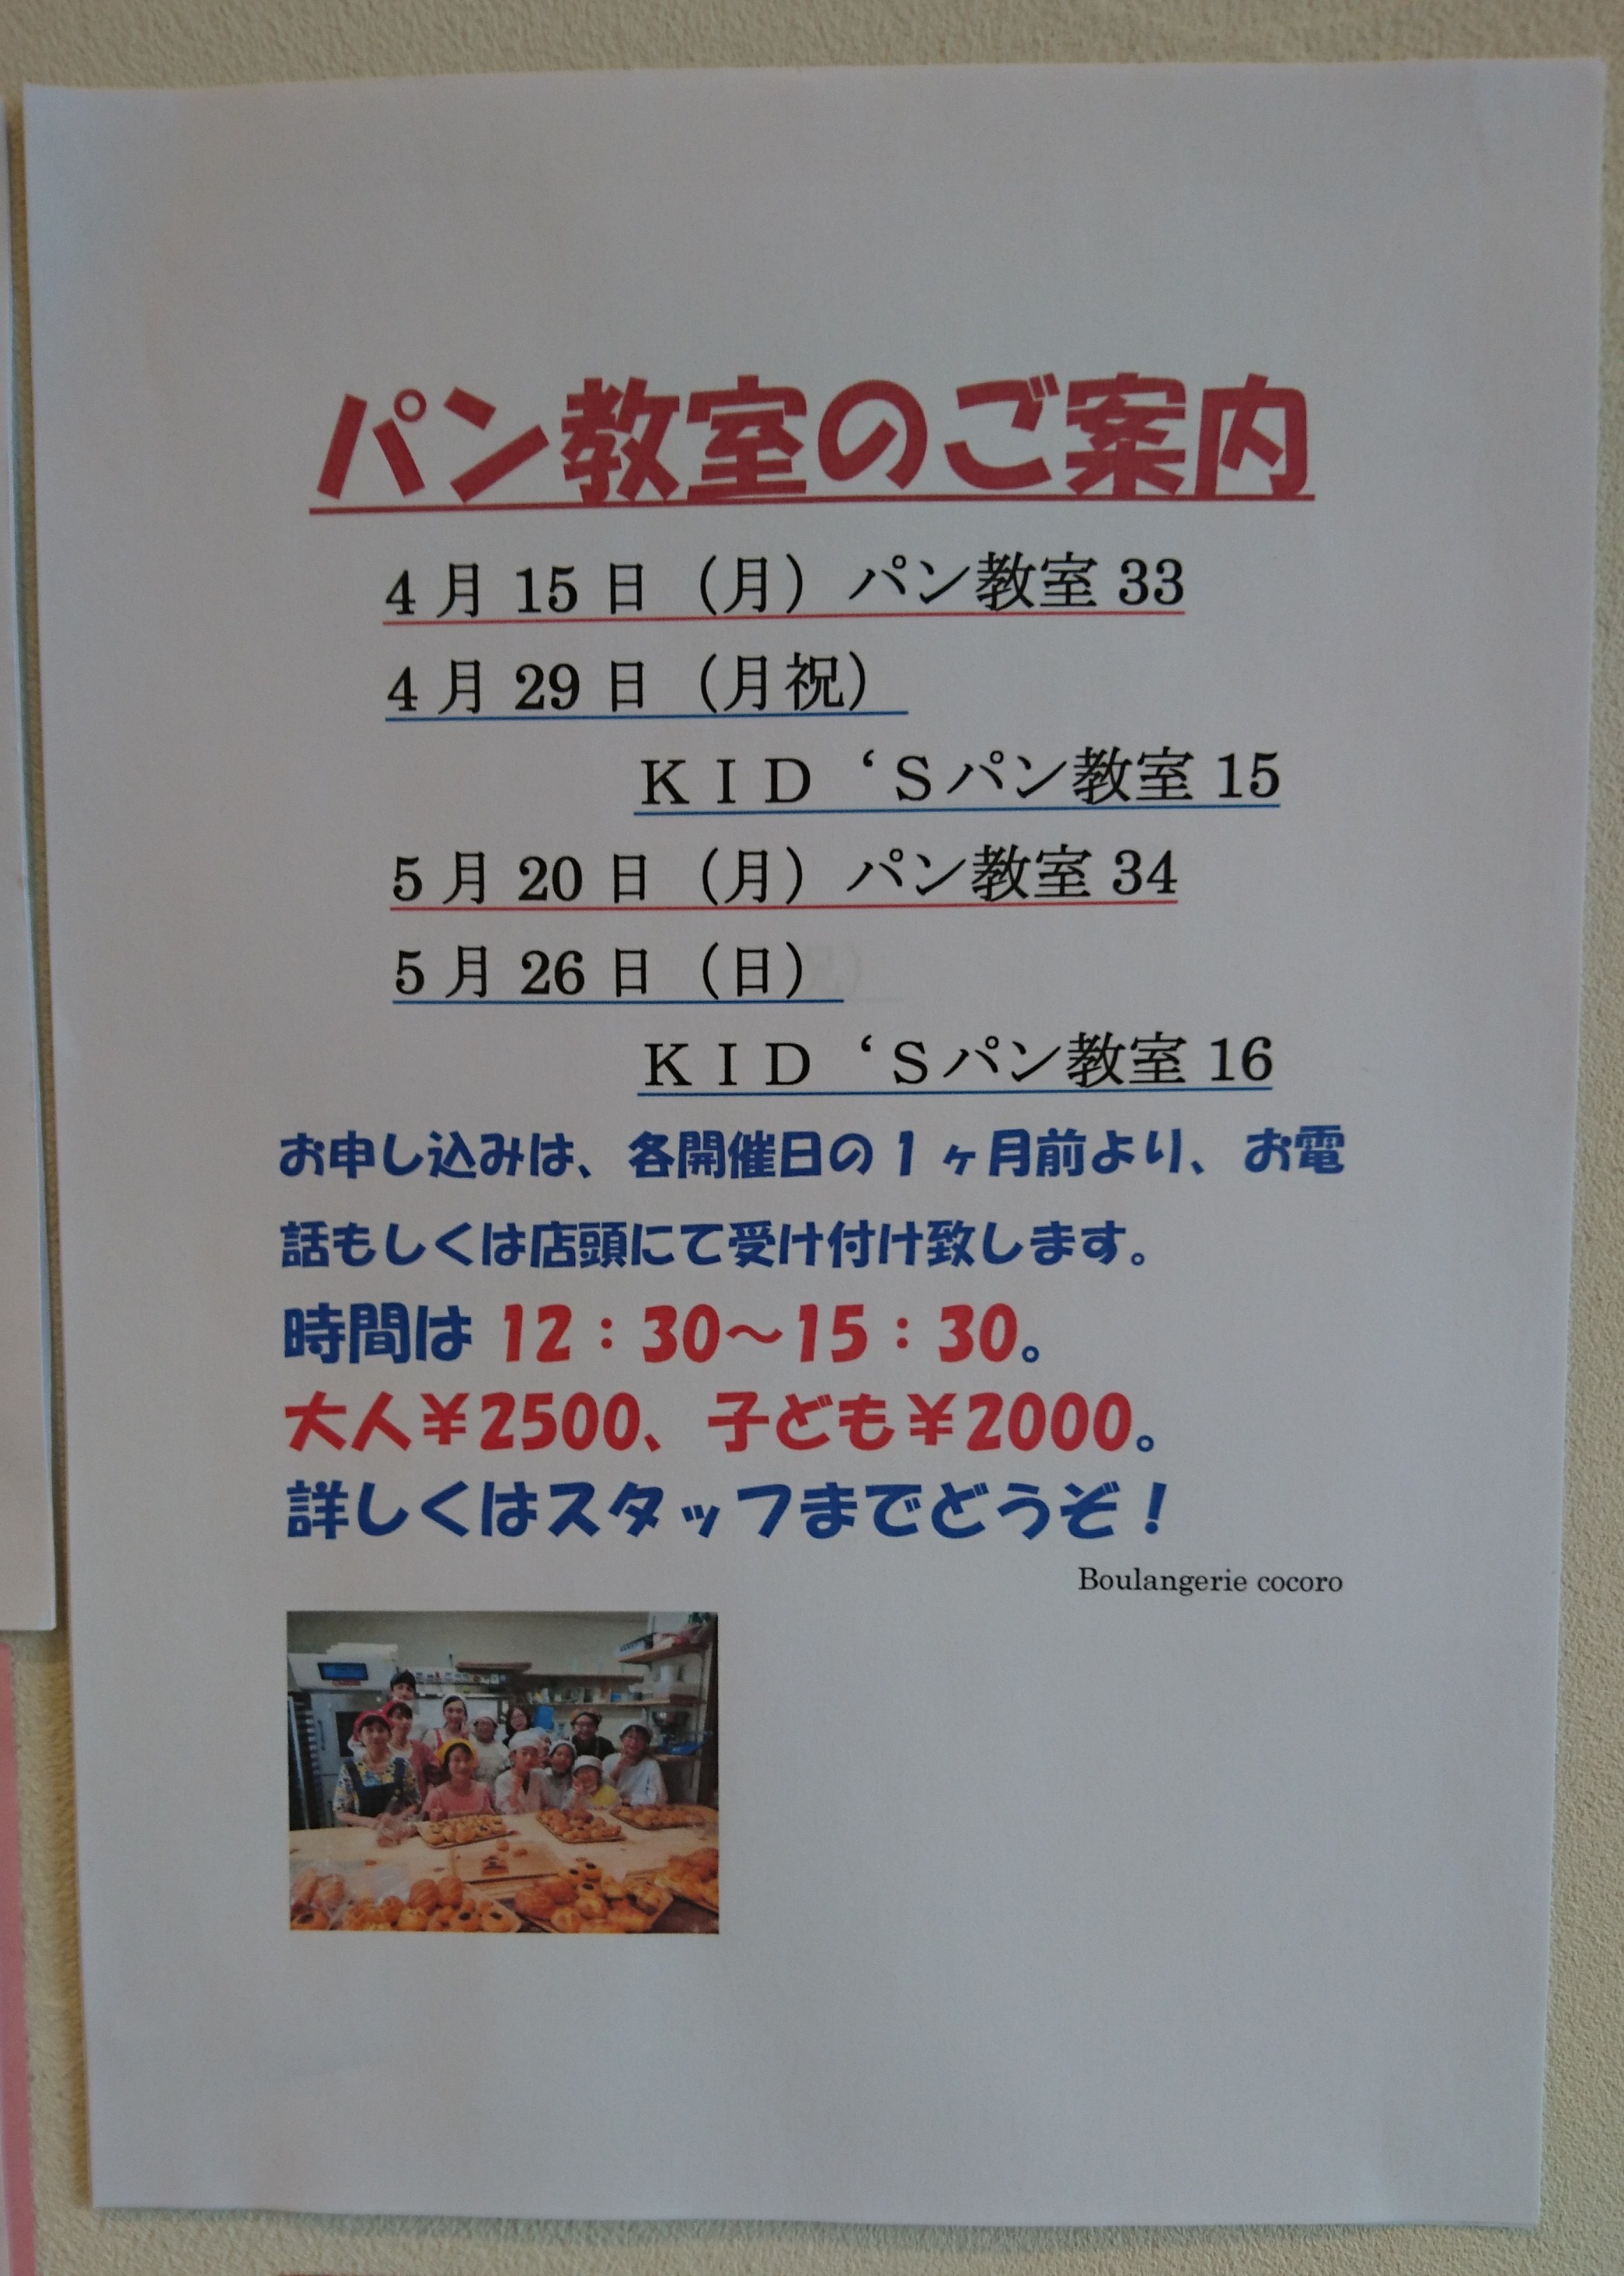 パン教室のご案内
4月15日（月）パン教室33
4月29日（月祝）
ＫＩＤ‘Ｓパン教室15
5月20日（月）パン教室34
5月26日（日）
ＫＩＤ‘Ｓパン教室16
お申し込みは、各開催日の1ヶ月前より、お電
話もしくは店頭にて受け付け致します。
時間は 12：30～15：30。
大人￥2500、子ども￥2000。
詳しくはスタッフまでどうぞ！
Boulangerie cocoro